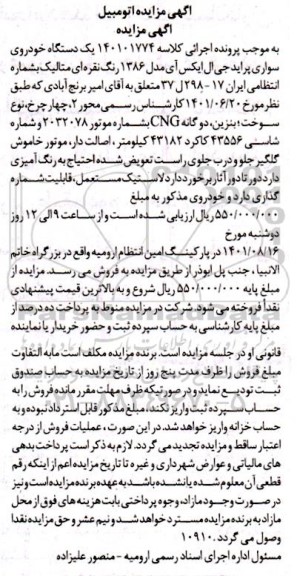 آگهی مزایده اتومبیل
آگهی مزایده
به موجب پرونده اجرائی کلاسه ۱۴۰۱۰۱۷۷۴ یک دستگاه خودروی
سواری پراید جی ال ایکس آی مدل ۱۳۸۶ رنگ نقره ای متالیک بشماره
انتظامی ایران ۱۷ - ۲۹۸ ل ۳۷ متعلق به آقای امیر برنج آبادی که طبق
نظر مورخ ۱۴۰۱/۰۶/۲۰ کارشناس رسمی محور ۲، چهار چرخ، نوع
سوخت؛ بنزین، دو گانه CNG بشماره موتور ۲۰۳۲۰۷۸ و شماره
شاسی ۴۳۵۵۶ کارکرد ۴۳۱۸۲ کیلومتر ، اصالت دارد، موتور خاموش
گلگیر جلو و درب جلوی راست تعویض شده احتیاج به رنگ آمیزی
دارد دور تا دور آثار برخورد دارد لاستیک مستعمل، قابلیت شماره
گذاری دارد و خودروی مذکور به مبلغ
۵۵۰/۰۰۰/۰۰۰ ریال ارزیابی شده است و از ساعت ۹ الی ۱۲ روز
دوشنبه مورخ
۱۴۰۱/۰۸/۱۶ در پارکینگ امین انتظام ارومیه واقع در بزرگراه خاتم
الانبیاء، جنب پل ابوذر از طریق مزایده به فروش می رسد. مزایده از
مبلغ پایه ۵۵۰/۰۰۰/۰۰۰ ریال شروع و به بالاترین قیمت پیشنهادی
نقداً فروخته می شود. شرکت در مزایده منوط به پرداخت ده درصد از
مبلغ پایه کارشناسی به حساب سپرده ثبت و حضور خریدار یا نماینده
قانونی او در جلسه مزایده است. برنده مزایده مکلف است مابه التفاوت
مبلغ فروش را ظرف مدت پنج روز از تاریخ مزایده به حساب صندوق
ثبت تودیع نماید و در صورتیکه ظرف مهلت مقرر مانده فروش را به
حساب سپرده ثبت واریز نکند، مبلغ مذکور قابل استرداد نبوده و به
حساب خزانه واریز خواهد شد، در این صورت ، عملیات فروش از درجه
اعتبار ساقط و مزایده تجدید می گردد. لازم به ذکر است پرداخت بدهی
های مالیاتی و عوارض شهرداری و غیره تا تاریخ مزایده اعم از اینکه رقم
قطعی آن معلوم شده یا نشده باشد به عهده برنده مزایده است و نیز
در صورت وجود مازاد، وجوه پرداختی بابت هزینه های فوق از محل
مازاد به برنده مزایده مسترد خواهد شد و نیم عشر و حق مزایده نقداً
وصول می گردد. ۱۰۹۱۰
مسئول اداره اجرای اسناد رسمی ارومیه - منصور علیزاده